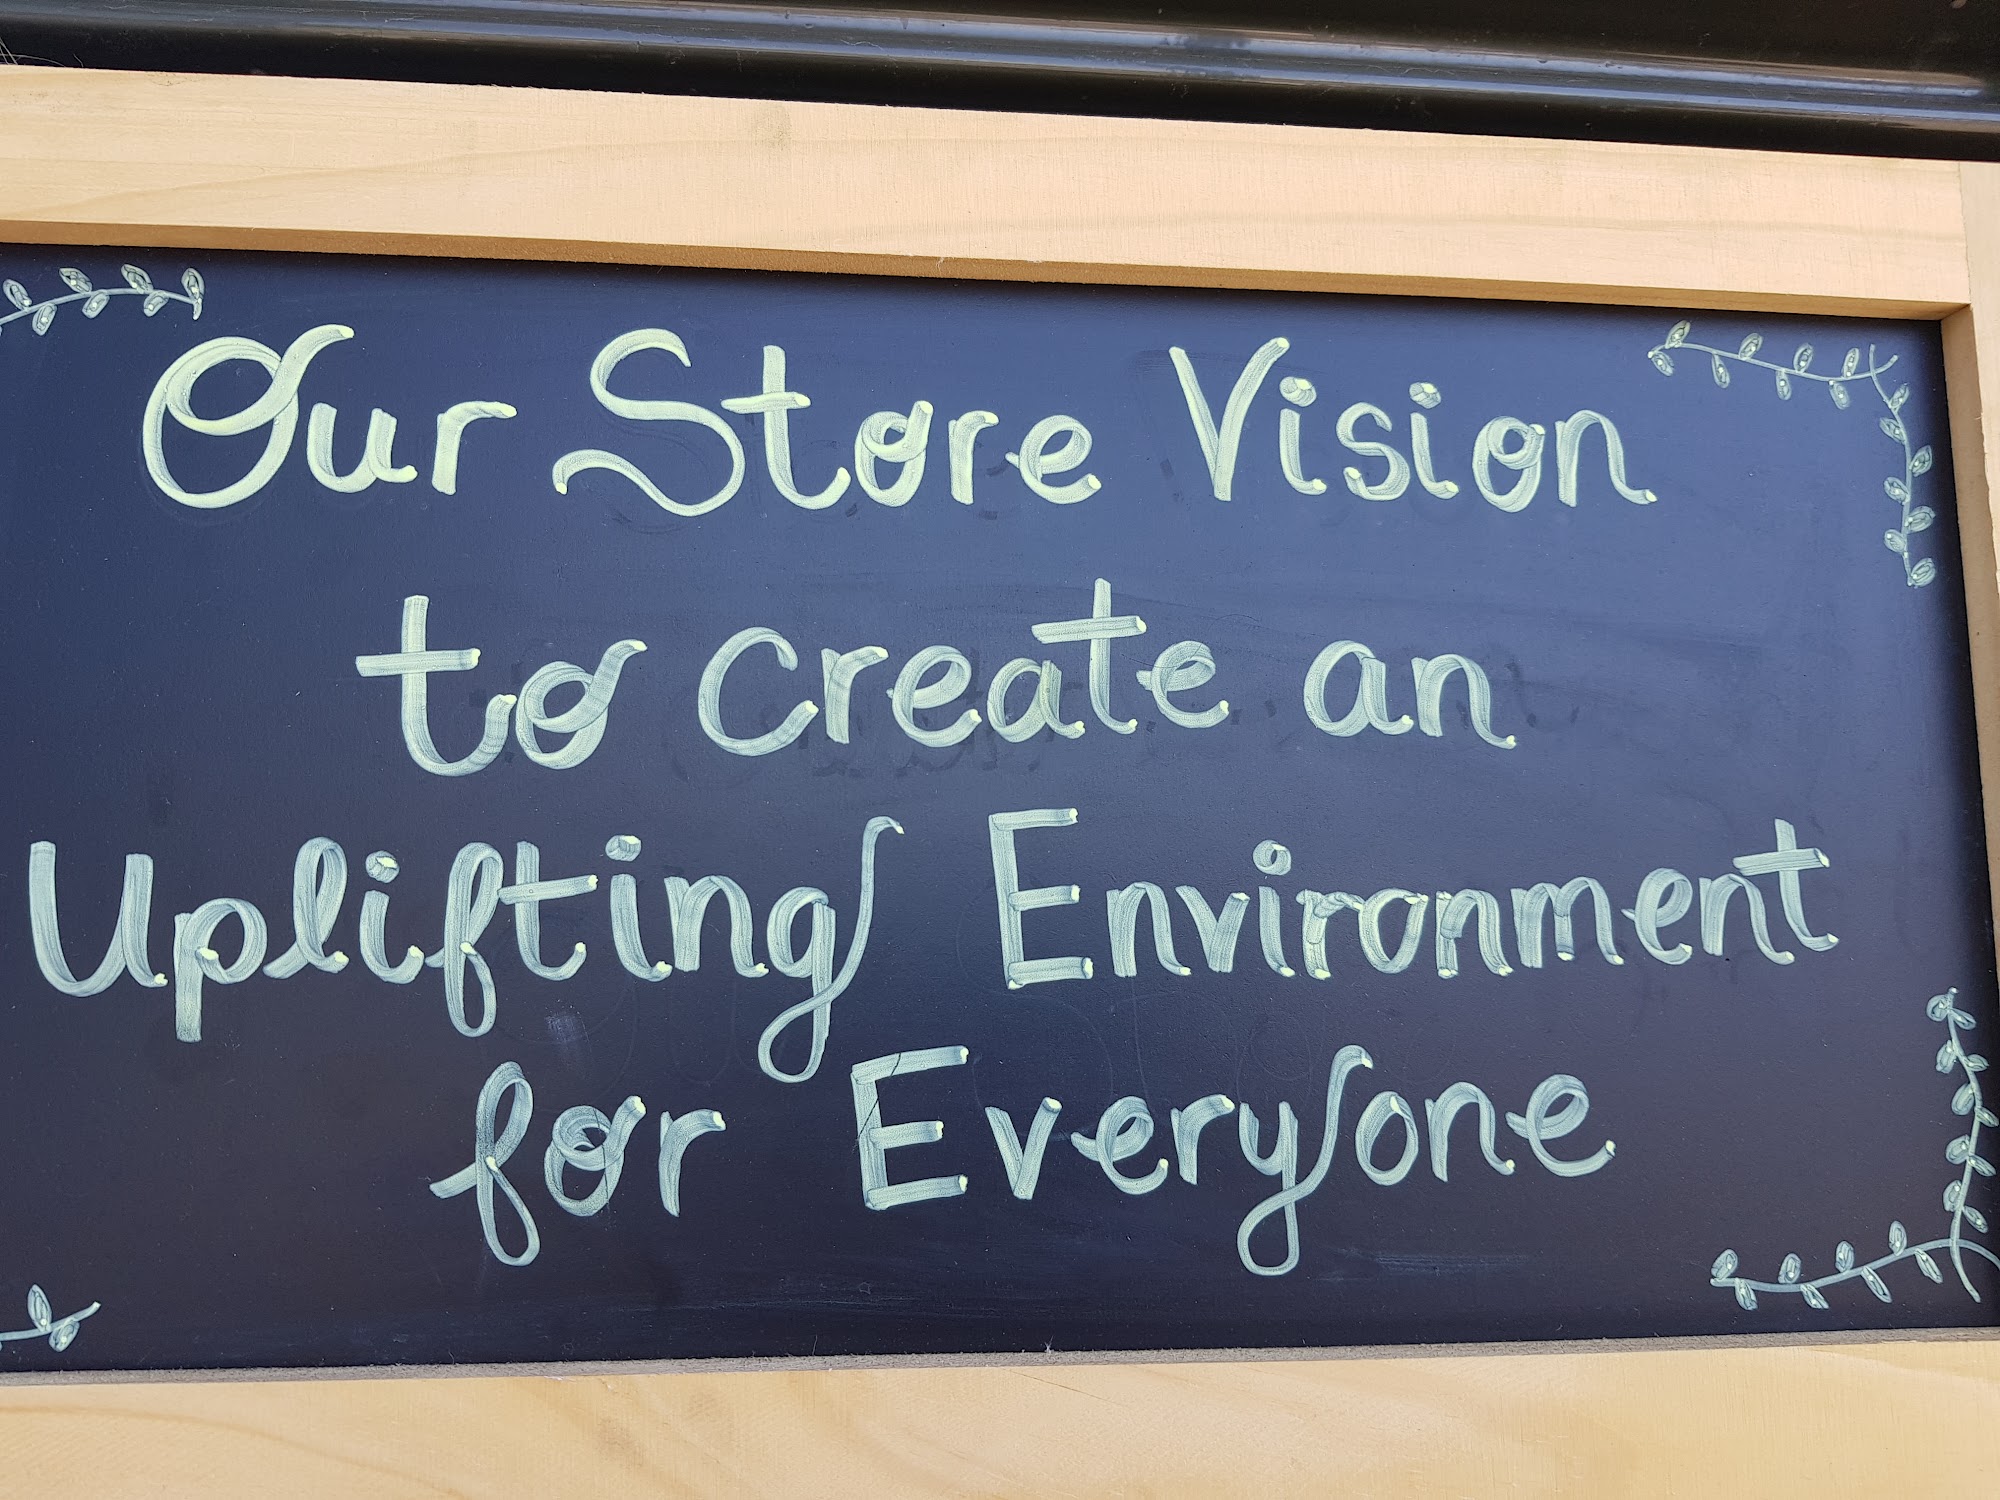 Our Store Vision
to create an
Uplifting Environment
for Everyone